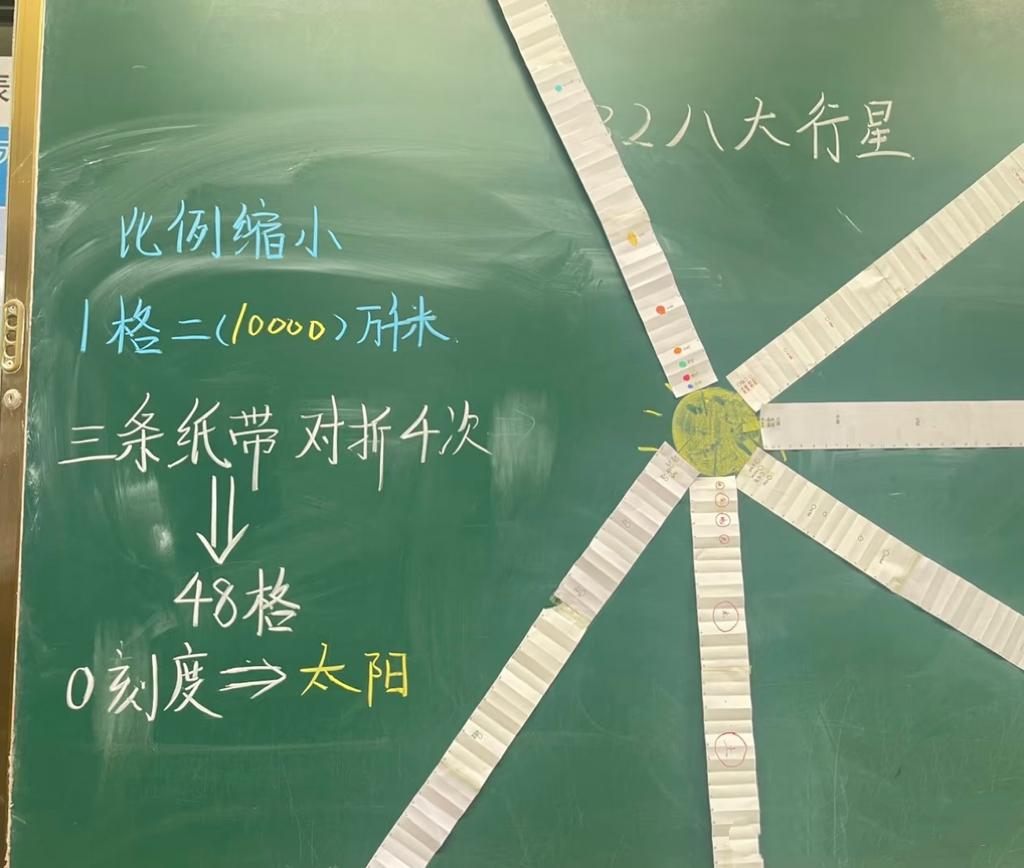 2八大行星
比例缩小
1格=(10000)万千米
三条纸带对折4次
48格
0刻度⇒太阳